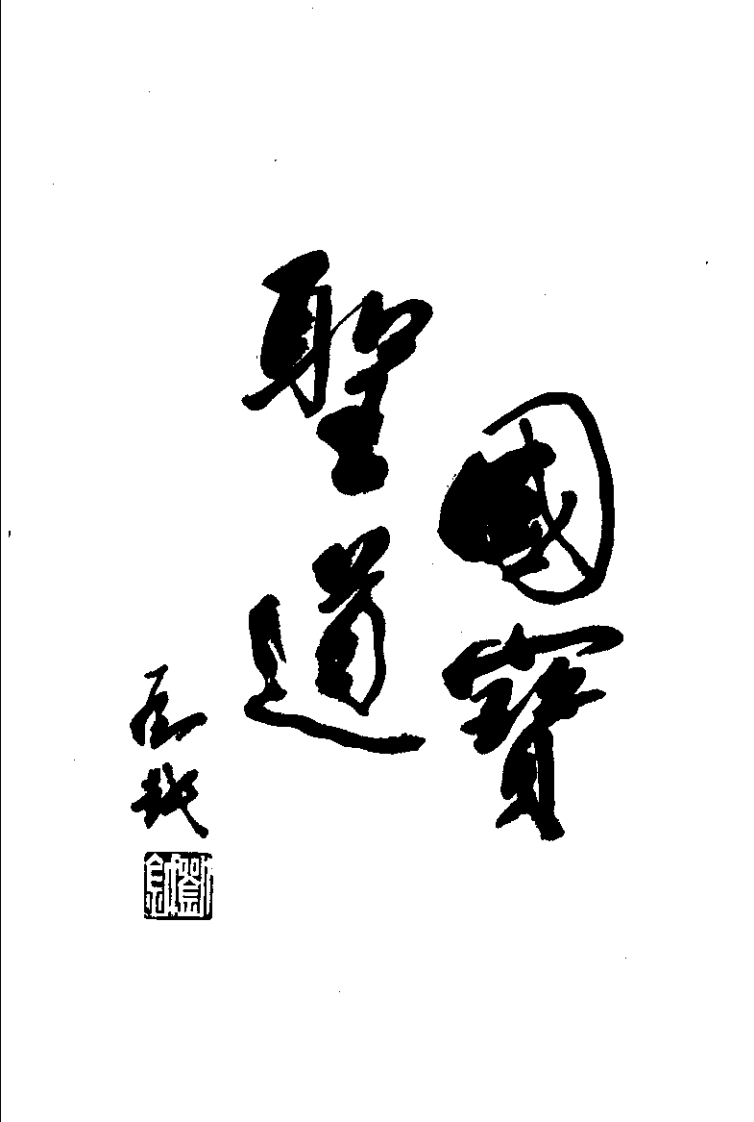 國寶
聖道